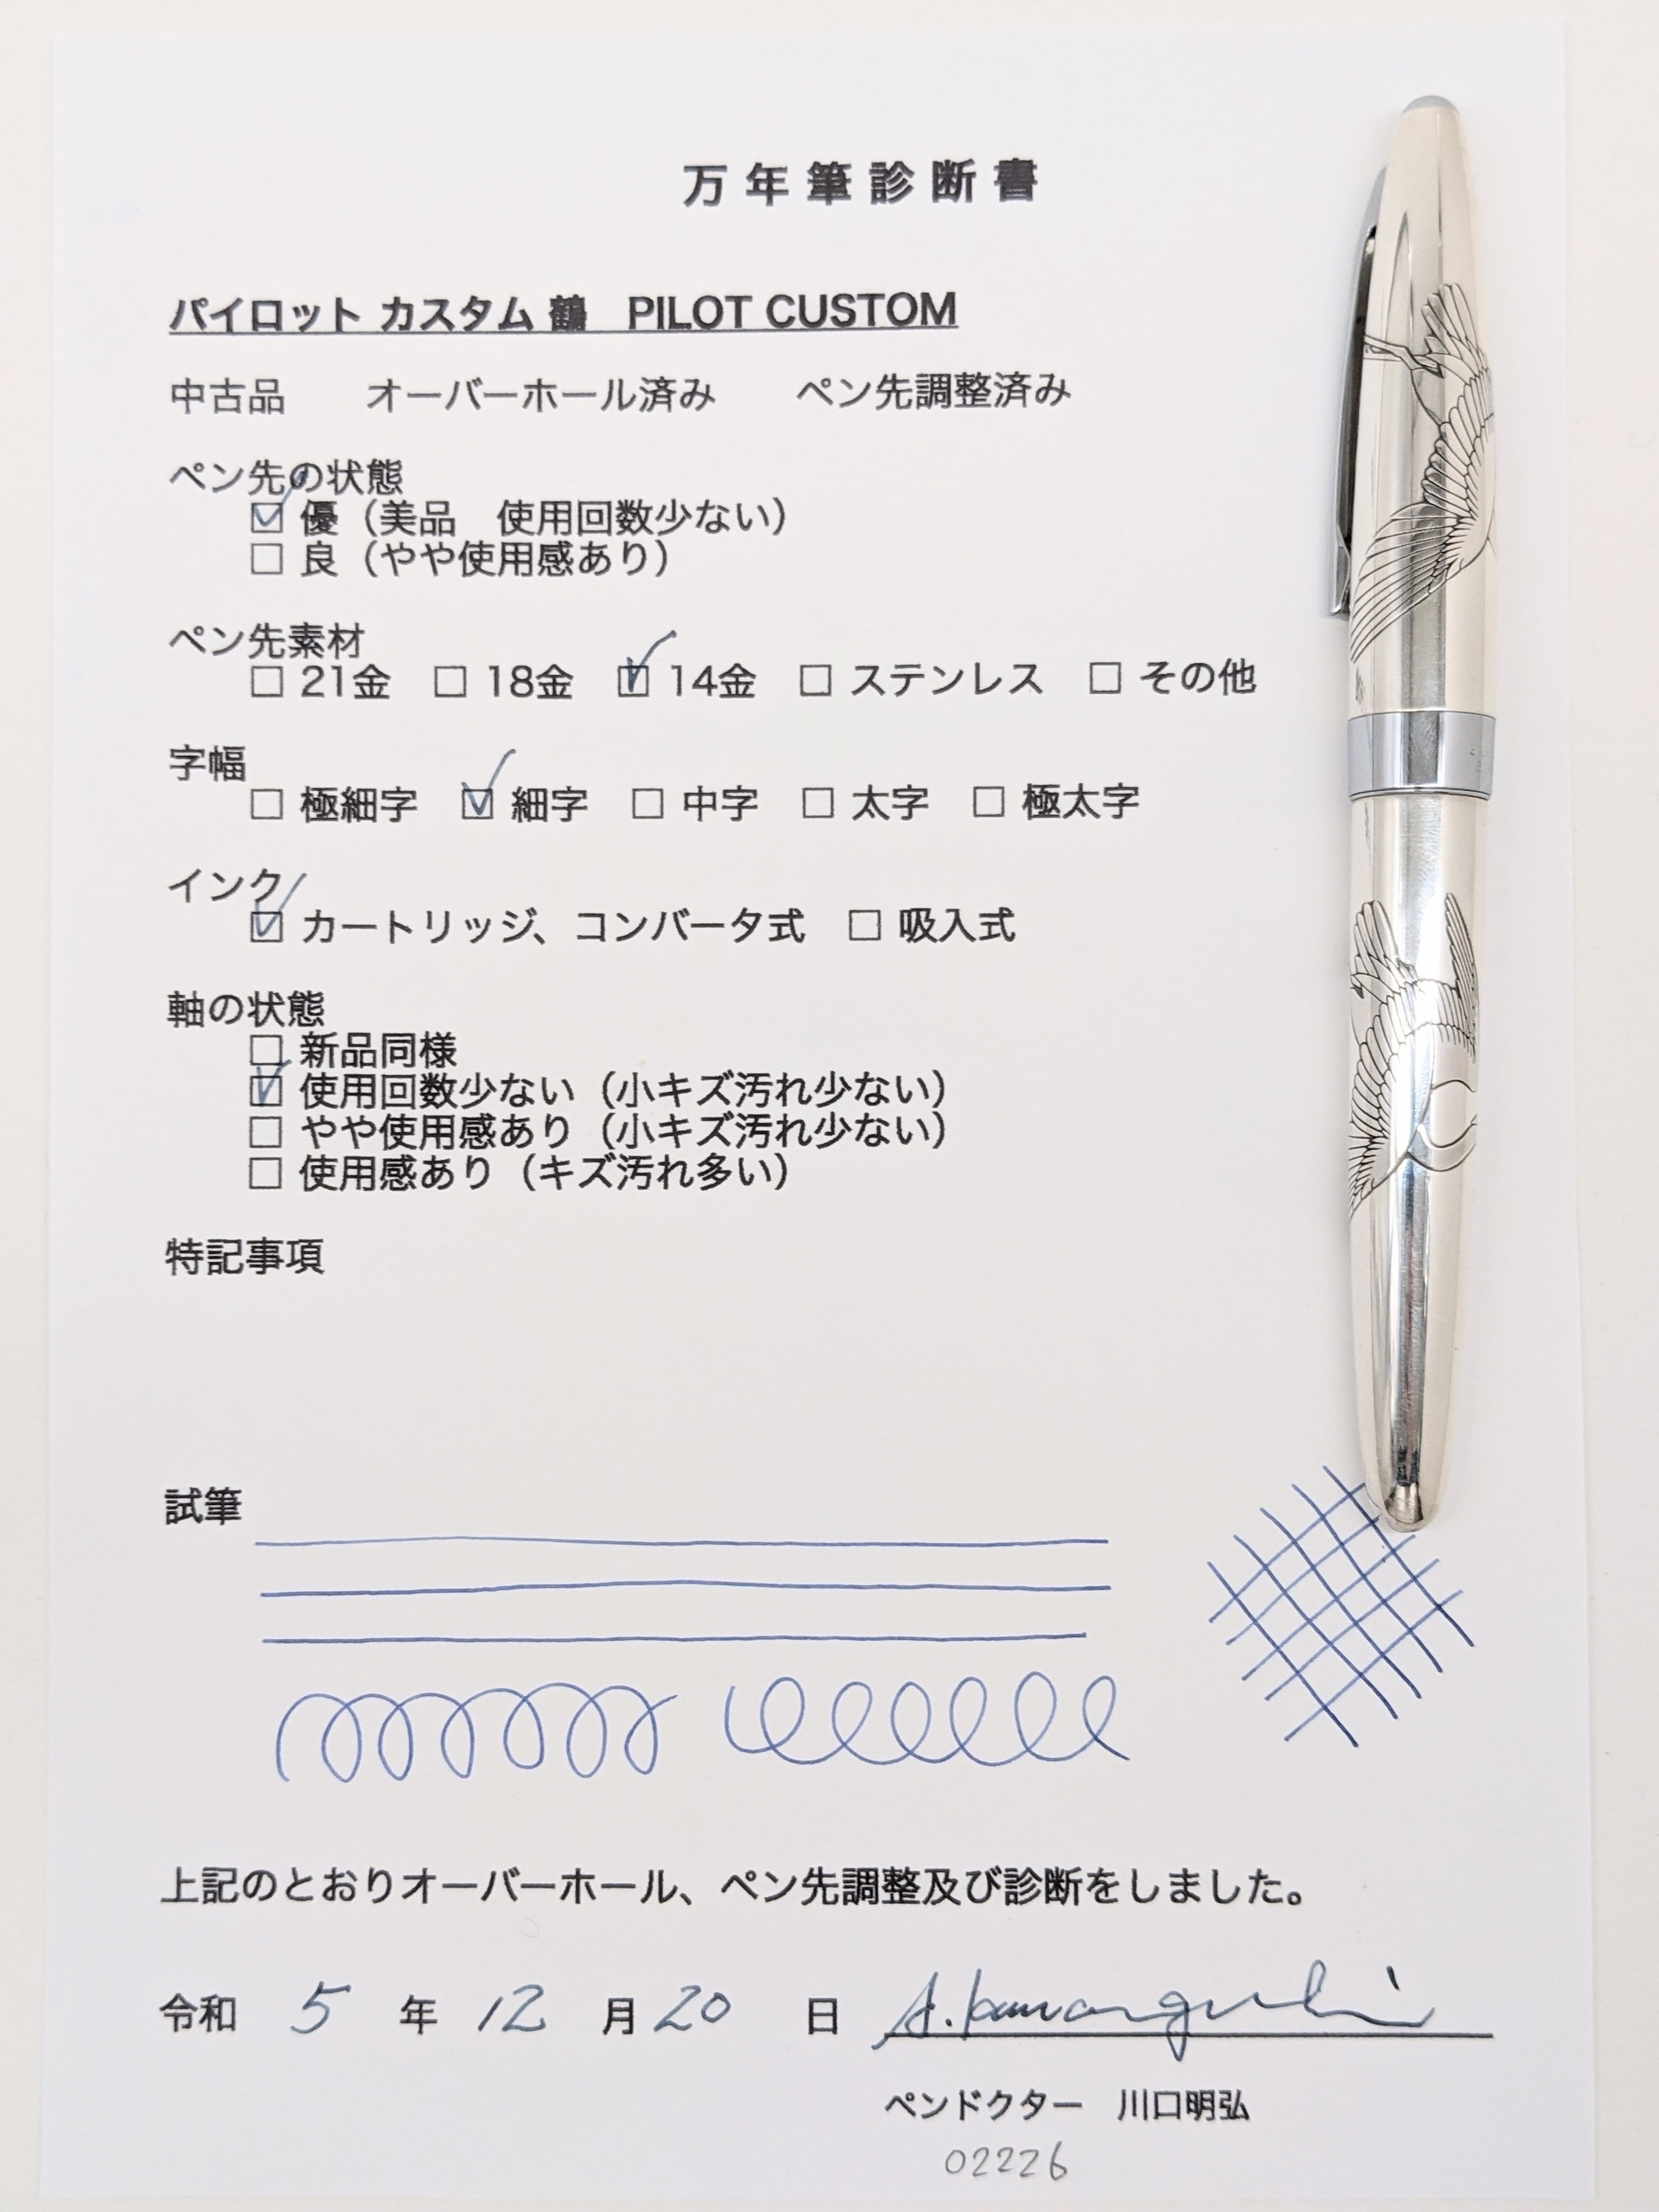 万年筆診断書
パイロット カスタム 鶴　PILOT CUSTOM
中古品　　オーバーホール済み　　ペン先調整済み
ペン先の状態
☑ 優（美品　使用回数少ない）
□ 良（やや使用感あり）
ペン先素材
□ 21金　□ 18金　☑ 14金　□ ステンレス　□ その他
字幅
□ 極細字　☑ 細字　□ 中字　□ 太字　□ 極太字
インク
☑ カートリッジ、コンバータ式　□ 吸入式
軸の状態
□ 新品同様
☑ 使用回数少ない（小キズ汚れ少ない）
□ やや使用感あり（小キズ汚れ少ない）
□ 使用感あり（キズ汚れ多い）
特記事項
試筆
上記のとおりオーバーホール、ペン先調整及び診断をしました。
令和 5 年 12 月 20 日 A. Kawaguchi
ペンドクター　川口明弘
02226